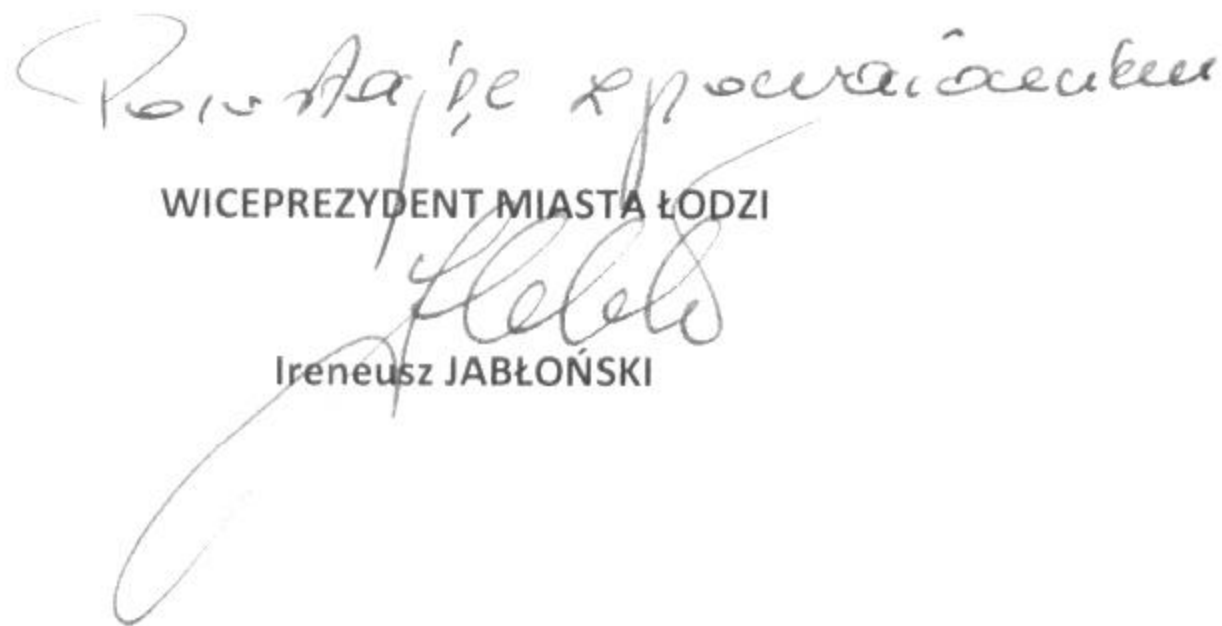 Pozostaję z poważaniem
WICEPREZYDENT MIASTA ŁODZI
Ireneusz JABŁOŃSKI